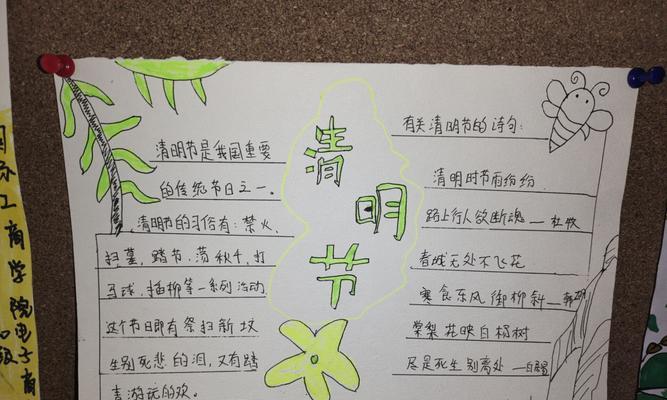 清明节
清明节是我国重要
的传统节日之一。
清明节的习俗有：禁火、
扫墓、踏节、荡秋千、打
马球、插柳等一系列活动
这个节日即有祭扫新坟
生别死悲的泪，又有踏
青游玩的欢。
有关清明节的诗句：
清明时节雨纷纷
路上行人欲断魂——杜牧
春城无处不飞花
寒食东风御柳斜——韩翃
棠梨花映白杨树
尽是死生别离处——白居易
国际工商学院电子商